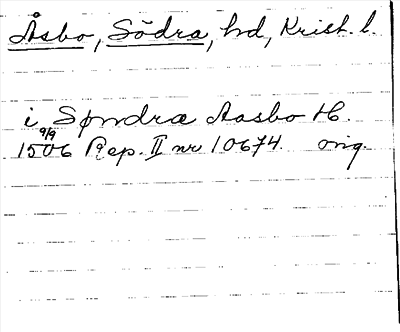 Åsbo, Södra, hd, Krist. l.
i Søndræ Aasbo H.
1506 9/9 Rep. II nr 10674. orig.